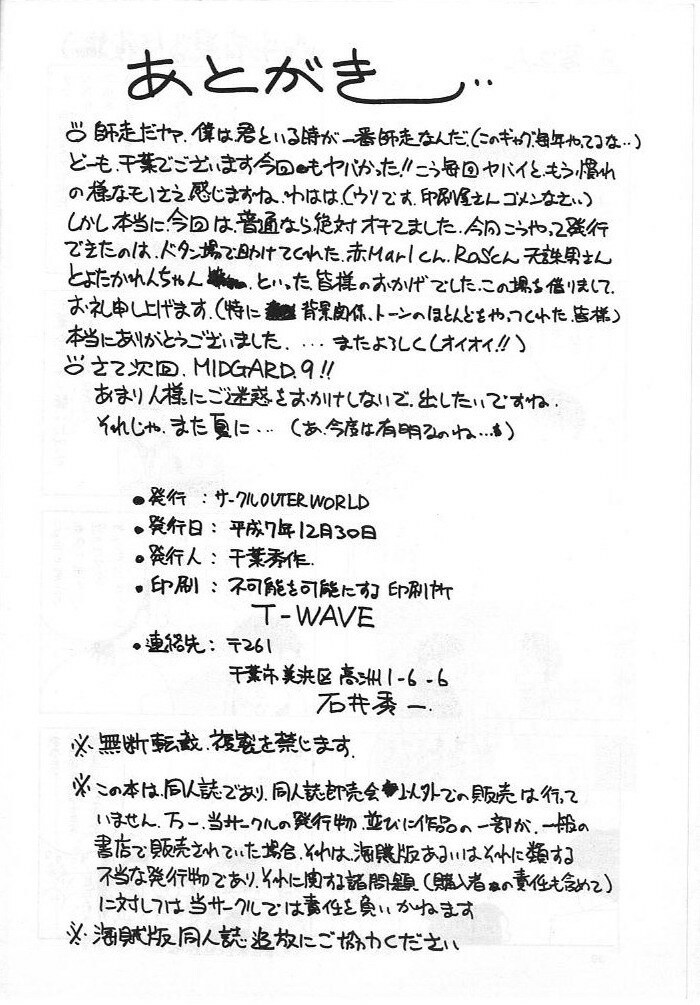 あとがき‥
師走だヤァ. 僕は君といる時が一番師走なんだ.(このギャグ毎年やってるな‥)
どーも. 千葉でございます今回もヤバかった!! こう毎回ヤバイと、もう慣れ
の様なモノさえ感じますね. わはは.(ウソです. 印刷屋さんゴメンなさい)
しかし本当に今回は、普通なら絶対オチてました. 今回こうやって発行
できたのは、ドタン場で助けてくれた. 赤Marlくん. RaSくん 天誅男さん
とよたかれんちゃん といった皆様のおかげでした. この場を借りまして.
お礼申し上げます.(特に 背景関係、トーンのほとんどをやってくれた. 皆様)
本当にありがとうございました. … またよろしく(オイオイ!!)
さて次回. MIDGARD.9!!
あまり人様にご迷惑をおかけしないで. 出したいですね.
それじゃ. また夏に… (あ. 今度は有明なのね…)
●発行 : サークルOUTERWORLD
●発行日 : 平成7年12月30日
●発行人 : 千葉秀作.
●印刷 : 不可能を可能にする 印刷所
T-WAVE
●連絡先 : 〒261
千葉市美浜区高洲1-6-6
石井秀一
※ 無断転載. 複製を禁じます.
※ この本は. 同人誌であり. 同人誌即売会以外での販売は行って
いません. 万一. 当サークルの発行物. 並びに作品の一部が、一般の
書店で販売されていた場合. それは. 海賊版あるいはそれに類する
不当な発行物であり. それに関する諸問題(購入者の責任も含めて)
に対しては当サークルでは責任を負いかねます
※ 海賊版同人誌追放にご協力ください